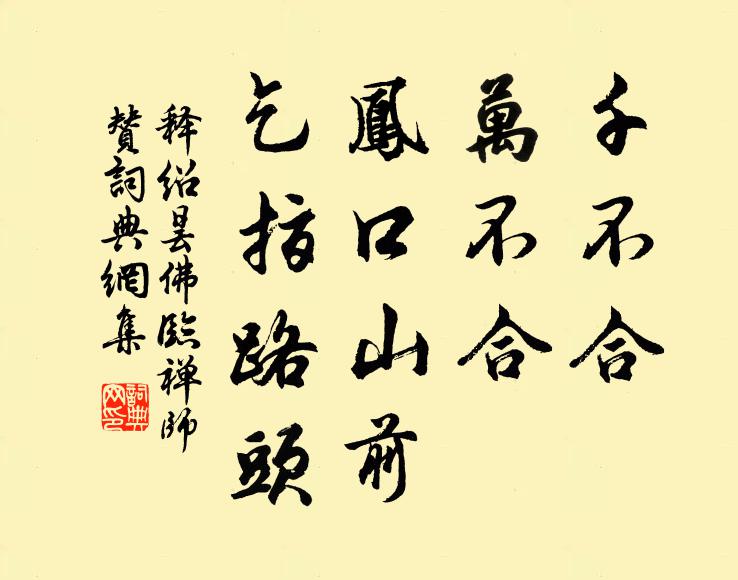 千不合
萬不合
鳳口山前
乞指路頭
释紹曇佛臨禅師
贊詞典網集
詞典
网印